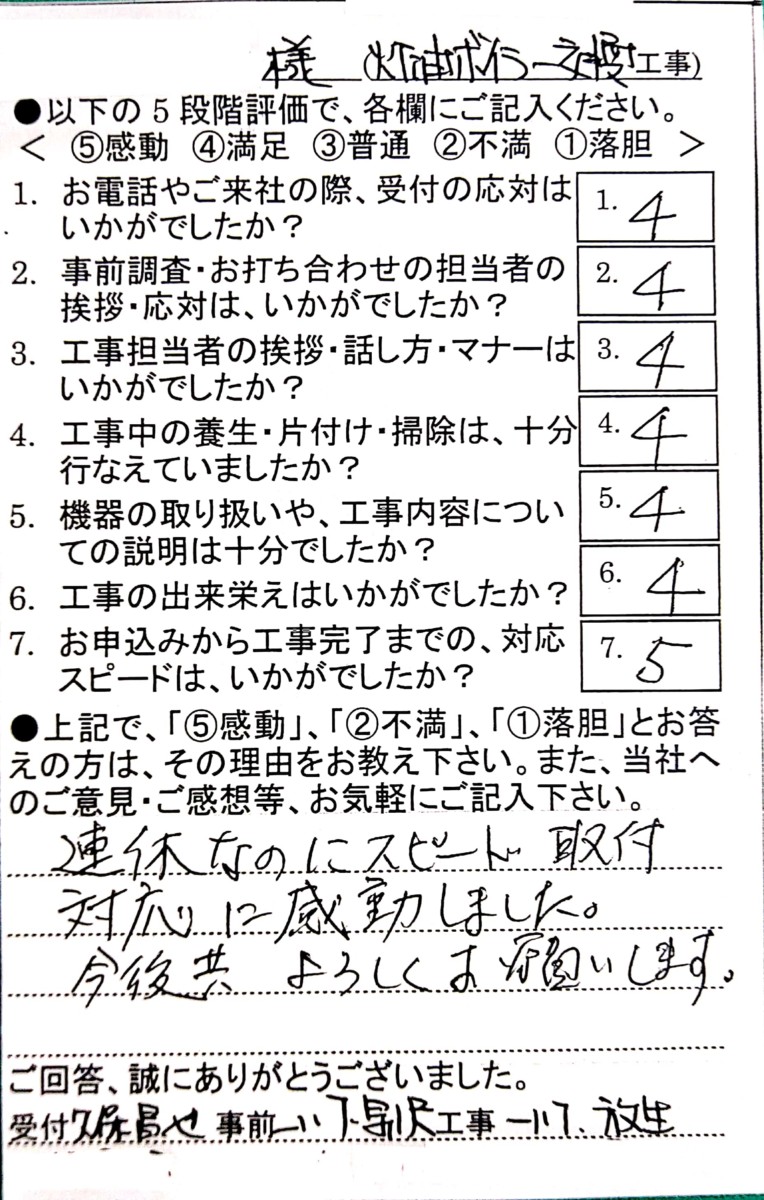 様 (灯油ボイラー交換工事)
●以下の5段階評価で、各欄にご記入ください。
< ⑤感動 ④満足 ③普通 ②不満 ①落胆 >
1. お電話やご来社の際、受付の応対は
いかがでしたか?
1. 4
2. 事前調査・お打ち合わせの担当者の
挨拶・応対は、いかがでしたか?
2. 4
3. 工事担当者の挨拶・話し方・マナーは
いかがでしたか?
3. 4
4. 工事中の養生・片付け・掃除は、十分
行なえていましたか?
4. 4
5. 機器の取り扱いや、工事内容につい
ての説明は十分でしたか?
5. 4
6. 工事の出来栄えはいかがでしたか?
6. 4
7. お申込みから工事完了までの、対応
スピードは、いかがでしたか?
7. 5
●上記で、「⑤感動」、「②不満」、「①落胆」とお答
えの方は、その理由をお教え下さい。また、当社へ
のご意見・ご感想等、お気軽にご記入下さい。
連休なのにスピード取付
対応に感動しました。
今後共 よろしくお願いします。
ご回答、誠にありがとうございました。
受付 事前 工事